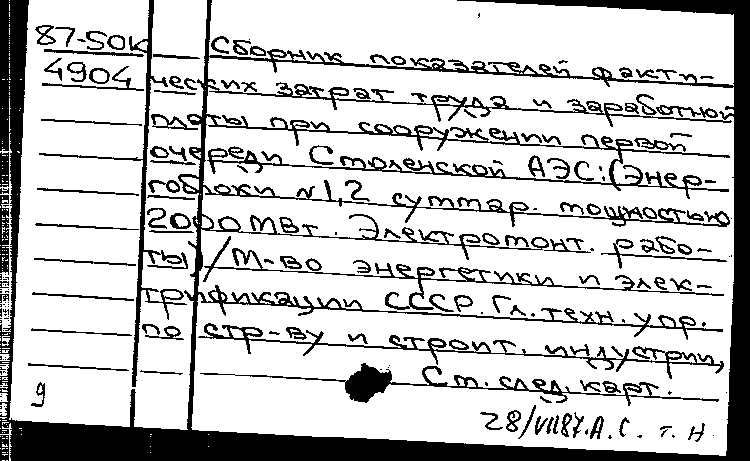 87-50К Сборник показателей факти-
4904 ческих затрат труда и заработной
платы при сооружении первой
очереди Смоленской АЭС:(Энер-
гоблоки N1,2 суммар. мощностью
2000МВт. Электромонт. рабо-
ты)/М-во энергетики и элек-
трификации СССР. Гл. техн. упр.
по стр-ву и строит. индустрии,
Ст. след. карт.
9
28/VII87. А.С. т. Н